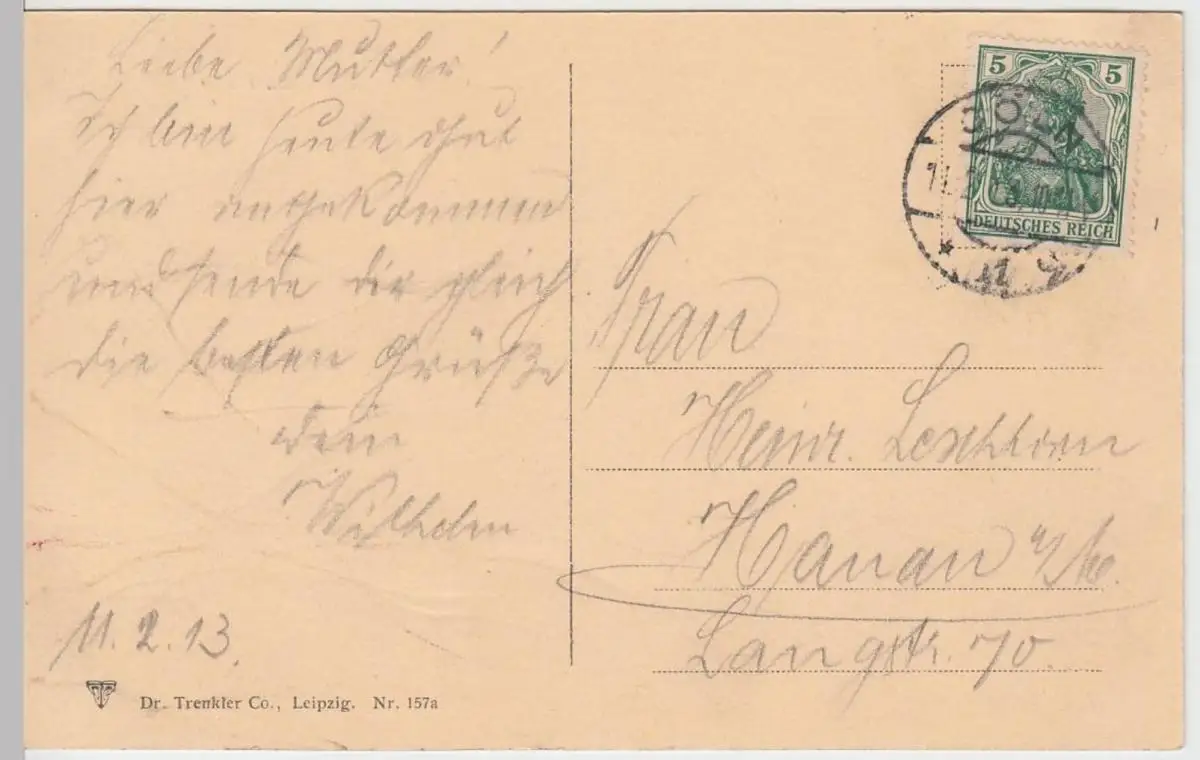 Liebe Mutter!
Ich bin heute gut
hier angekommen
und sende dir gleich
die besten Grüße
dein
Wilhelm
11.2.13.
Dr. Trenkler Co., Leipzig. Nr. 157a
5 5
DEUTSCHES REICH
CÖLN
* 1
Frau
Heinr. Leschhorn
Hanau a/M.
Langstr. 70.